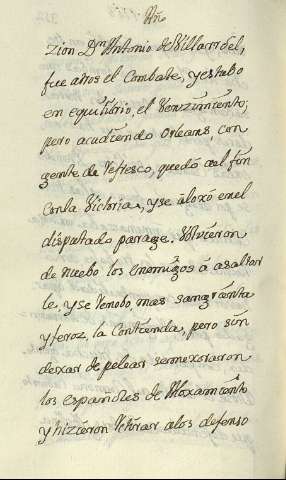 Año
zion Dn Antonio de Villarroel,
fue atros el Combate, y estubo
en equilibrio, el Venzimiento;
pero acudiendo Orleans, con
gente de refresco, quedó al fin
con la Victoria, y se aloxó en el
disputado parage. Volvieron
de nuebo los enemigos á asaltar
le, y se renobo, mas sangrienta
y feroz, la Contienda, pero sin
dexar de pelear se mexoraron
los españoles de Aloxamiento
y hizieron retirar alos defenso